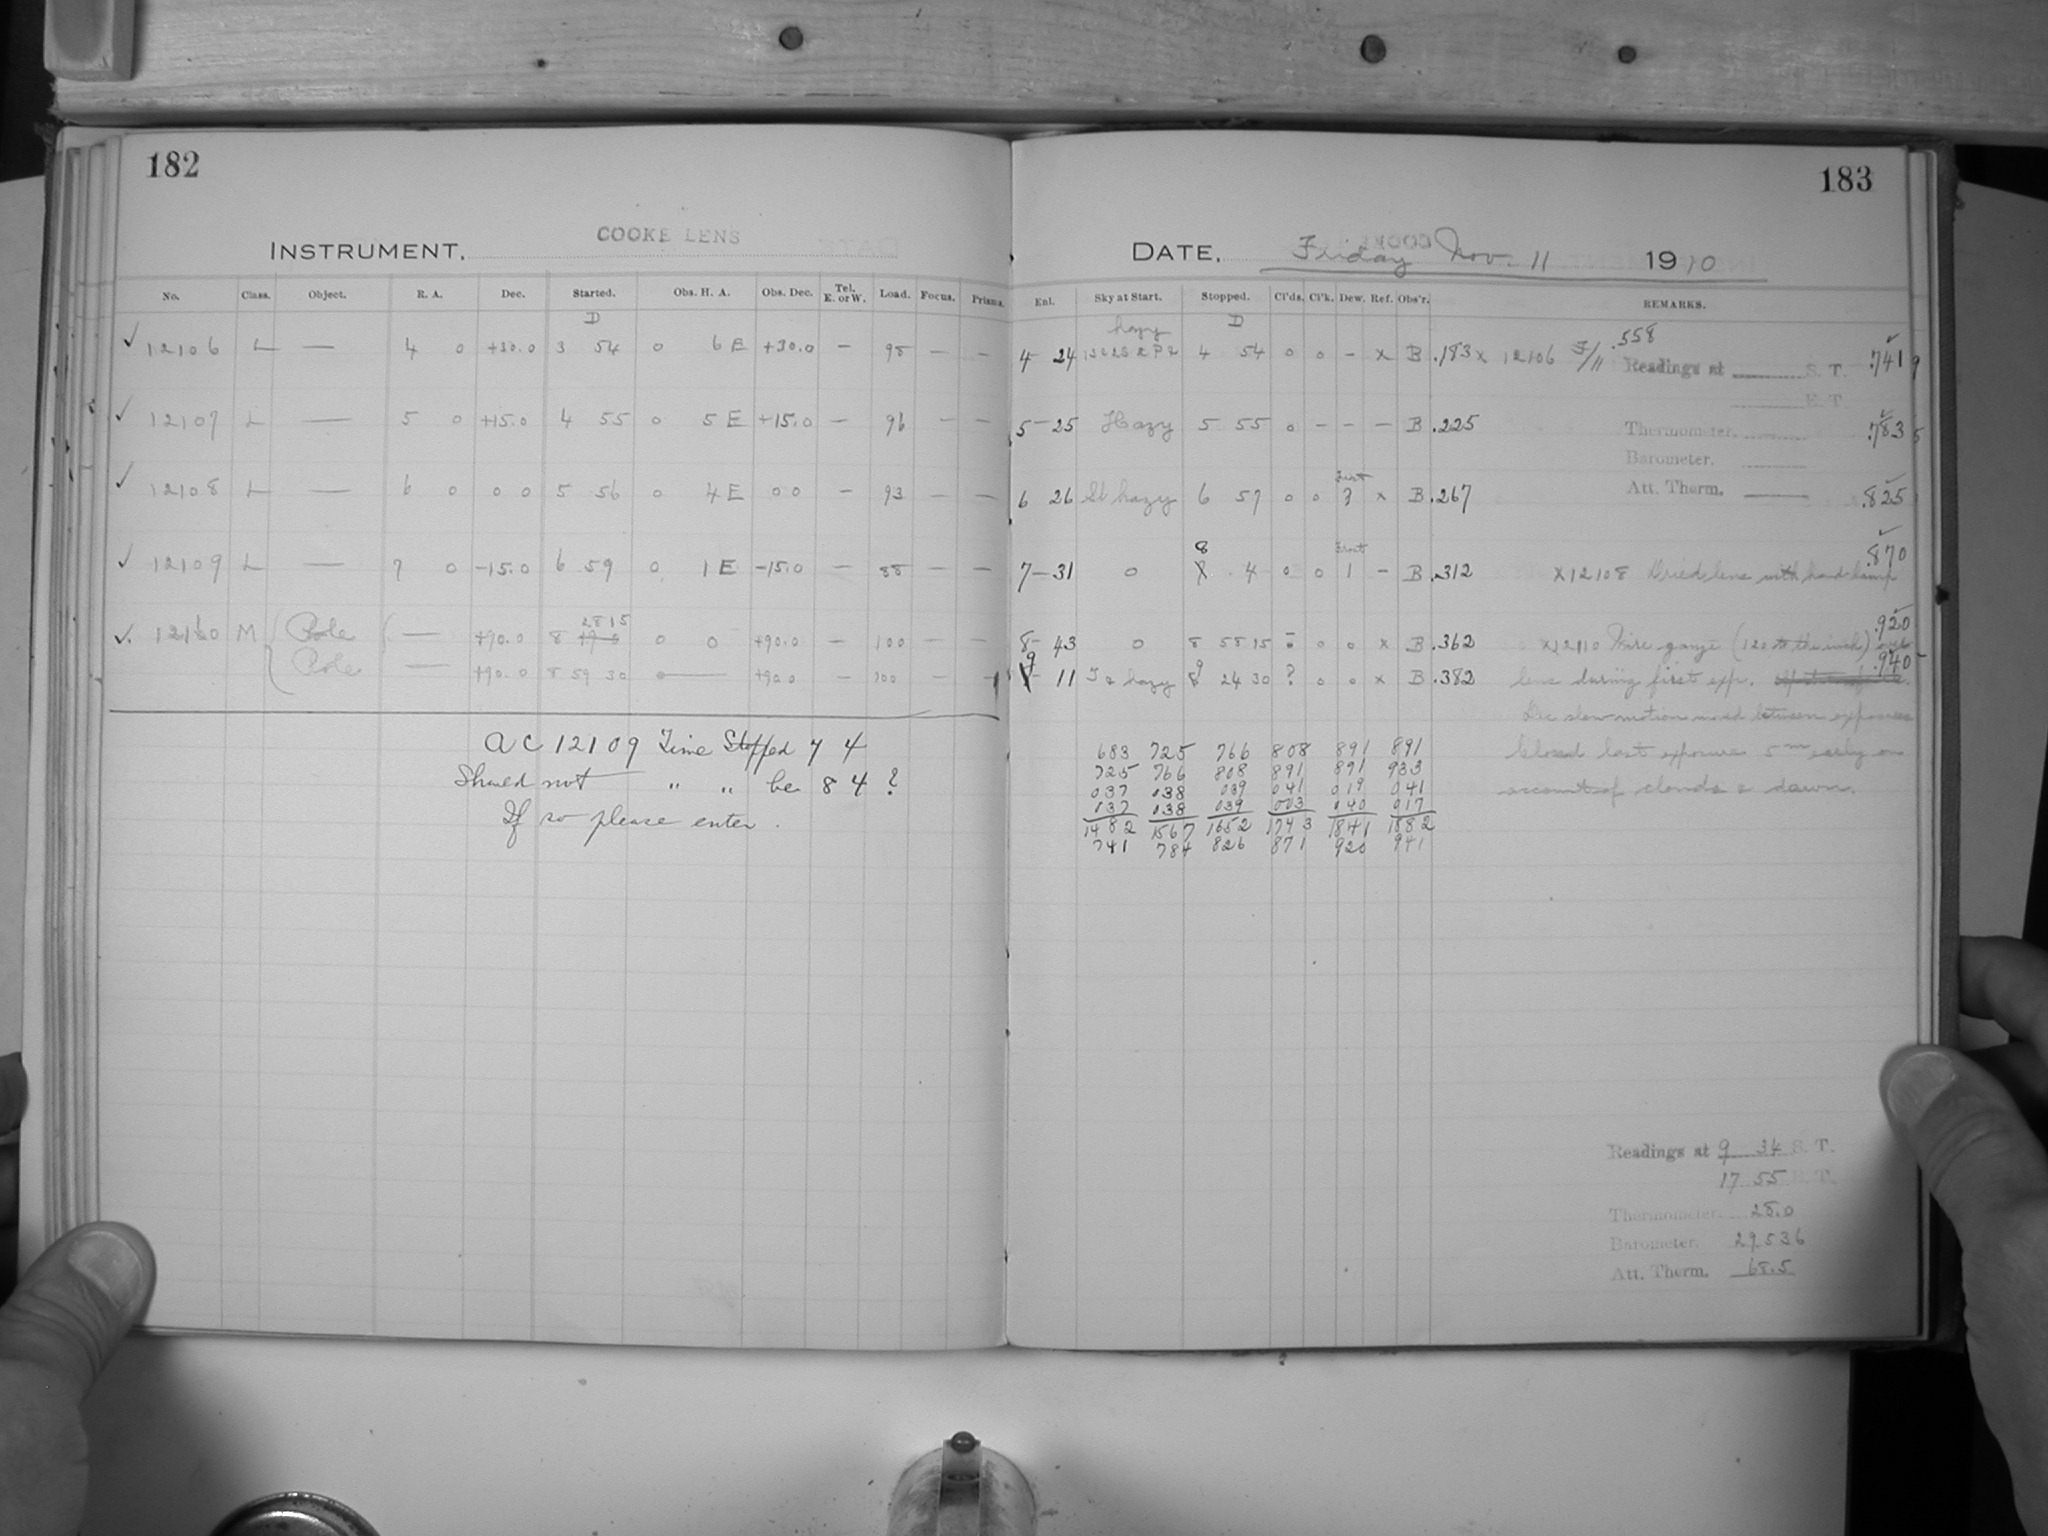 182
COOKE LENS
INSTRUMENT.
No. Class. Object. R. A. Dec. Started. Obs. H. A. Obs. Dec. Tel. E. or W. Load. Focus. Prisms.
D
✓ 12106 L — 4 0 +30.0 3 54 0 6 E +30.0 — 98 — —
✓ 12107 L — 5 0 +15.0 4 55 0 5 E +15.0 — 96 — —
✓ 12108 L — 6 0 0 0 5 56 0 4 E 0 0 — 93 — —
✓ 12109 L — 7 0 -15.0 6 59 0 1 E -15.0 — 88 — —
28 15
✓. 12110 M Pole — +90.0 8 0 0 +90.0 — 100 — —
Pole — +90.0 8 59 30 0 — +90.0 — 100 — —
AC 12109 Time Stopped 7 4
Should not " " be 8 4 ?
If so please enter.
183
DATE. Friday Nov. 11 1910
Enl. Sky at Start. Stopped. Cl'ds. Cl'k. Dew. Ref. Obs'r. REMARKS.
hazy D .558
4 24 4 54 0 0 — x B .183 x 12106 Readings at S. T. .741
E. T.
5—25 Hazy 5 55 0 — — — B .225 Thermometer. .783
Barometer.
Frost
6 26 Sl hazy 6 57 0 0 3 x B .267 Att. Therm. .825
8 Frost .870
7—31 0 4 0 0 1 — B .312 x12108 Dried lens with hand lamp
.920
8—43 0 8 58 15 0 0 x B .362 x12110 Wire gauze (120 to the inch) over
9 9 .940
11 hazy 24 30 ? 0 0 x B .382 lens during first exp.
Dec slow motion moved between exposures
683 725 766 808 891 891 Closed last exposure 5m early on
725 766 808 891 891 933
037 038 039 041 019 041 account of clouds & dawn.
037 038 039 003 040 017
1482 1567 1652 1743 1841 1882
741 784 826 871 920 941
Readings at 9 34 S. T.
17 55 E. T.
Thermometer. 28.0
Barometer. 29.536
Att. Therm. 68.5